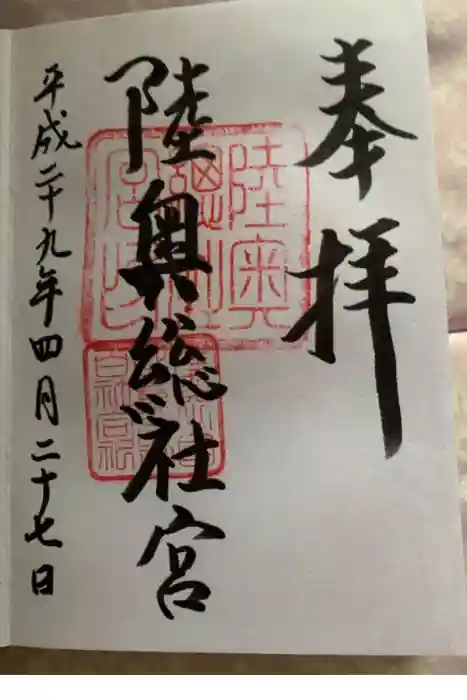 奉拝
陸奥総社宮
平成二十九年四月二十七日